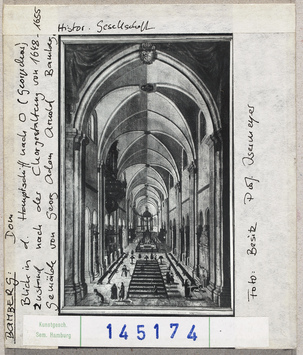 BAMBERG: Dom
Blick in d. Hauptschiff nach O (Georgschor)
Zustand nach der Chorgestaltung von 1648-1655
Gemälde von Georg Adam Arnold Bamberg,
Histor. Gesellschaft
Foto: Besitz Prof. Isermeyer
Kunstgesch.
Sem. Hamburg
145174